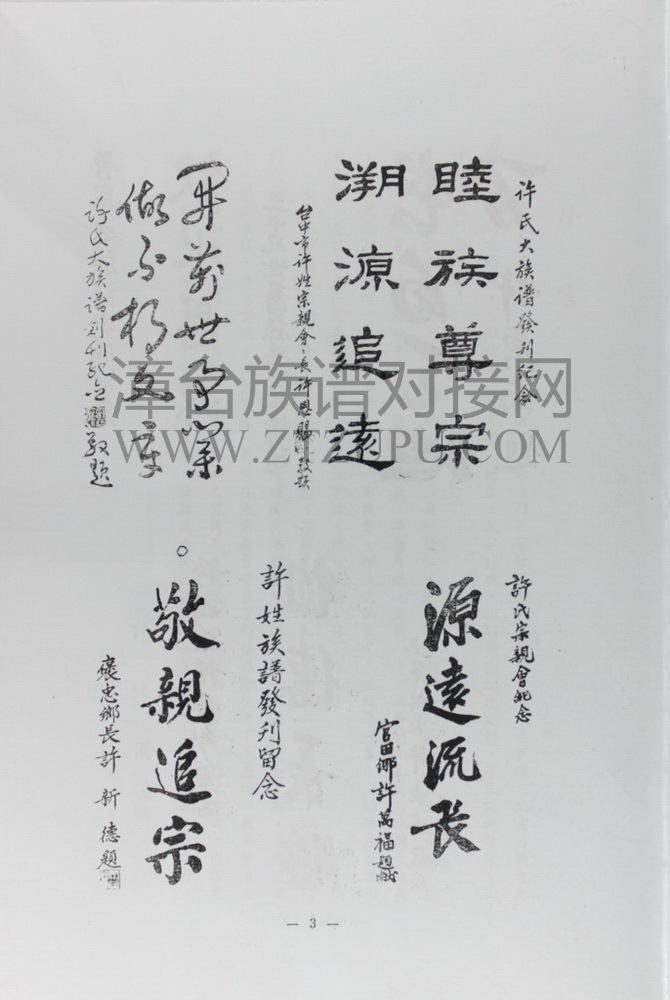 許氏大族譜發刊紀念
睦族尊宗
溯源追遠
台中市許姓宗親會會長許恩賜敬題
開萬世事業
做不朽文章
許氏大族譜創刊紀念
敬題
許氏宗親會紀念
源遠流長
官田鄉許萬福題
許姓族譜發刊留念
敬親追宗
褒忠鄉長許新德題
漳台族谱对接网
WWW.ZTZUPU.COM
— 3 —